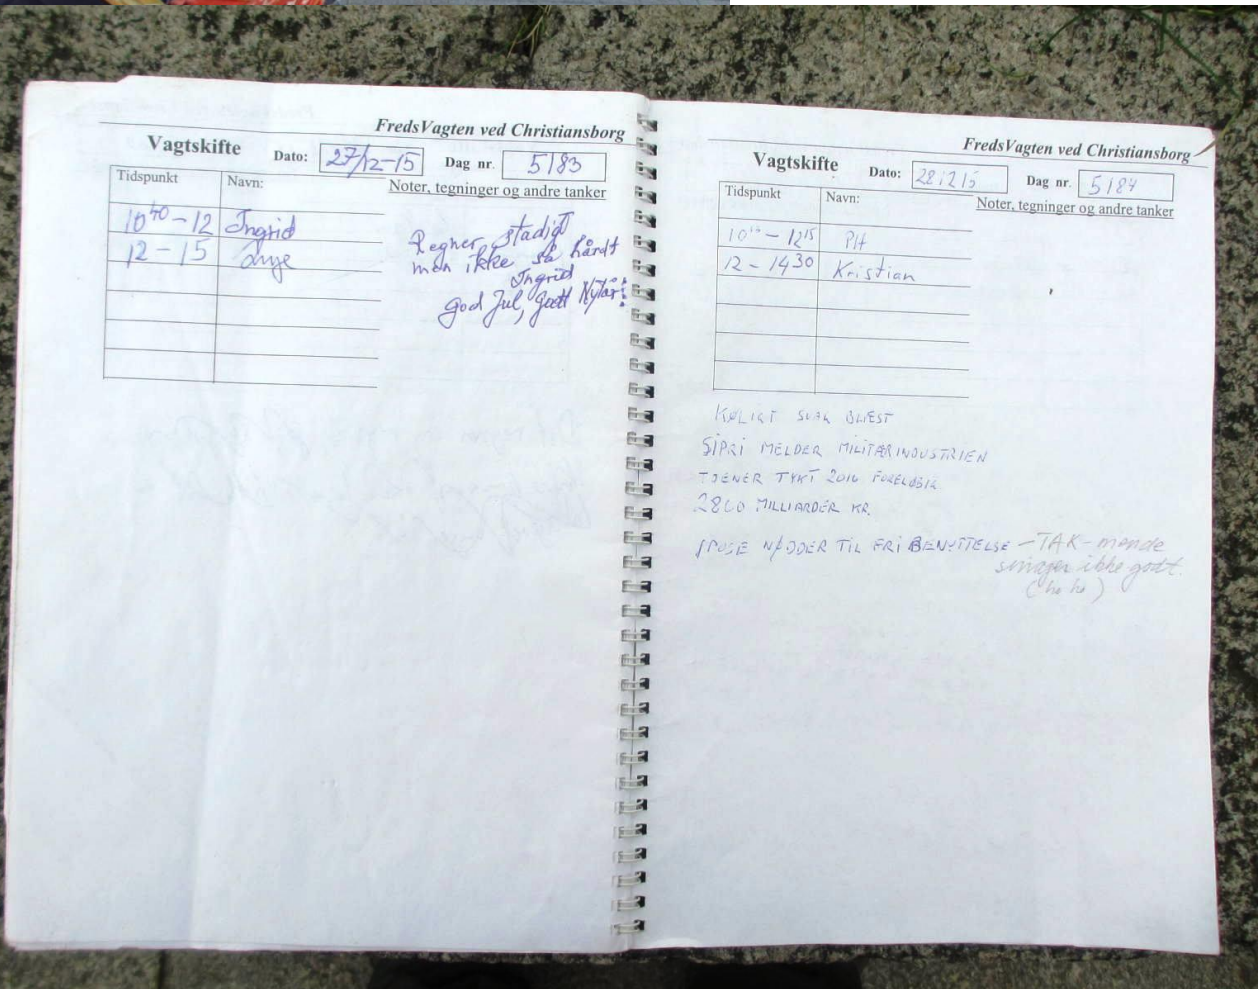 FredsVagten ved Christiansborg
Vagtskifte
Dato: 27/12-15
Dag nr. 5183
Tidspunkt Navn:
Noter, tegninger og andre tanker
10⁴⁰-12 Ingrid
12-15
Regner stadigt
men ikke så hårdt
Ingrid
god Jul, godt Nytår!
FredsVagten ved Christiansborg
Vagtskifte
Dato: 281215
Dag nr. 5184
Tidspunkt Navn:
Noter, tegninger og andre tanker
12¹⁵ PH
12-14³⁰ Kristian
KØLIGT SVAG BLÆST
SIPRI MELDER MILITÆRINDUSTRIEN
TJENER TYKT 2014 FORELØBIG
2800 MILLIARDER KR.
1 POSE NØDDER TIL FRI BENYTTELSE -TAK-
smager ikke godt.
(ho ho)